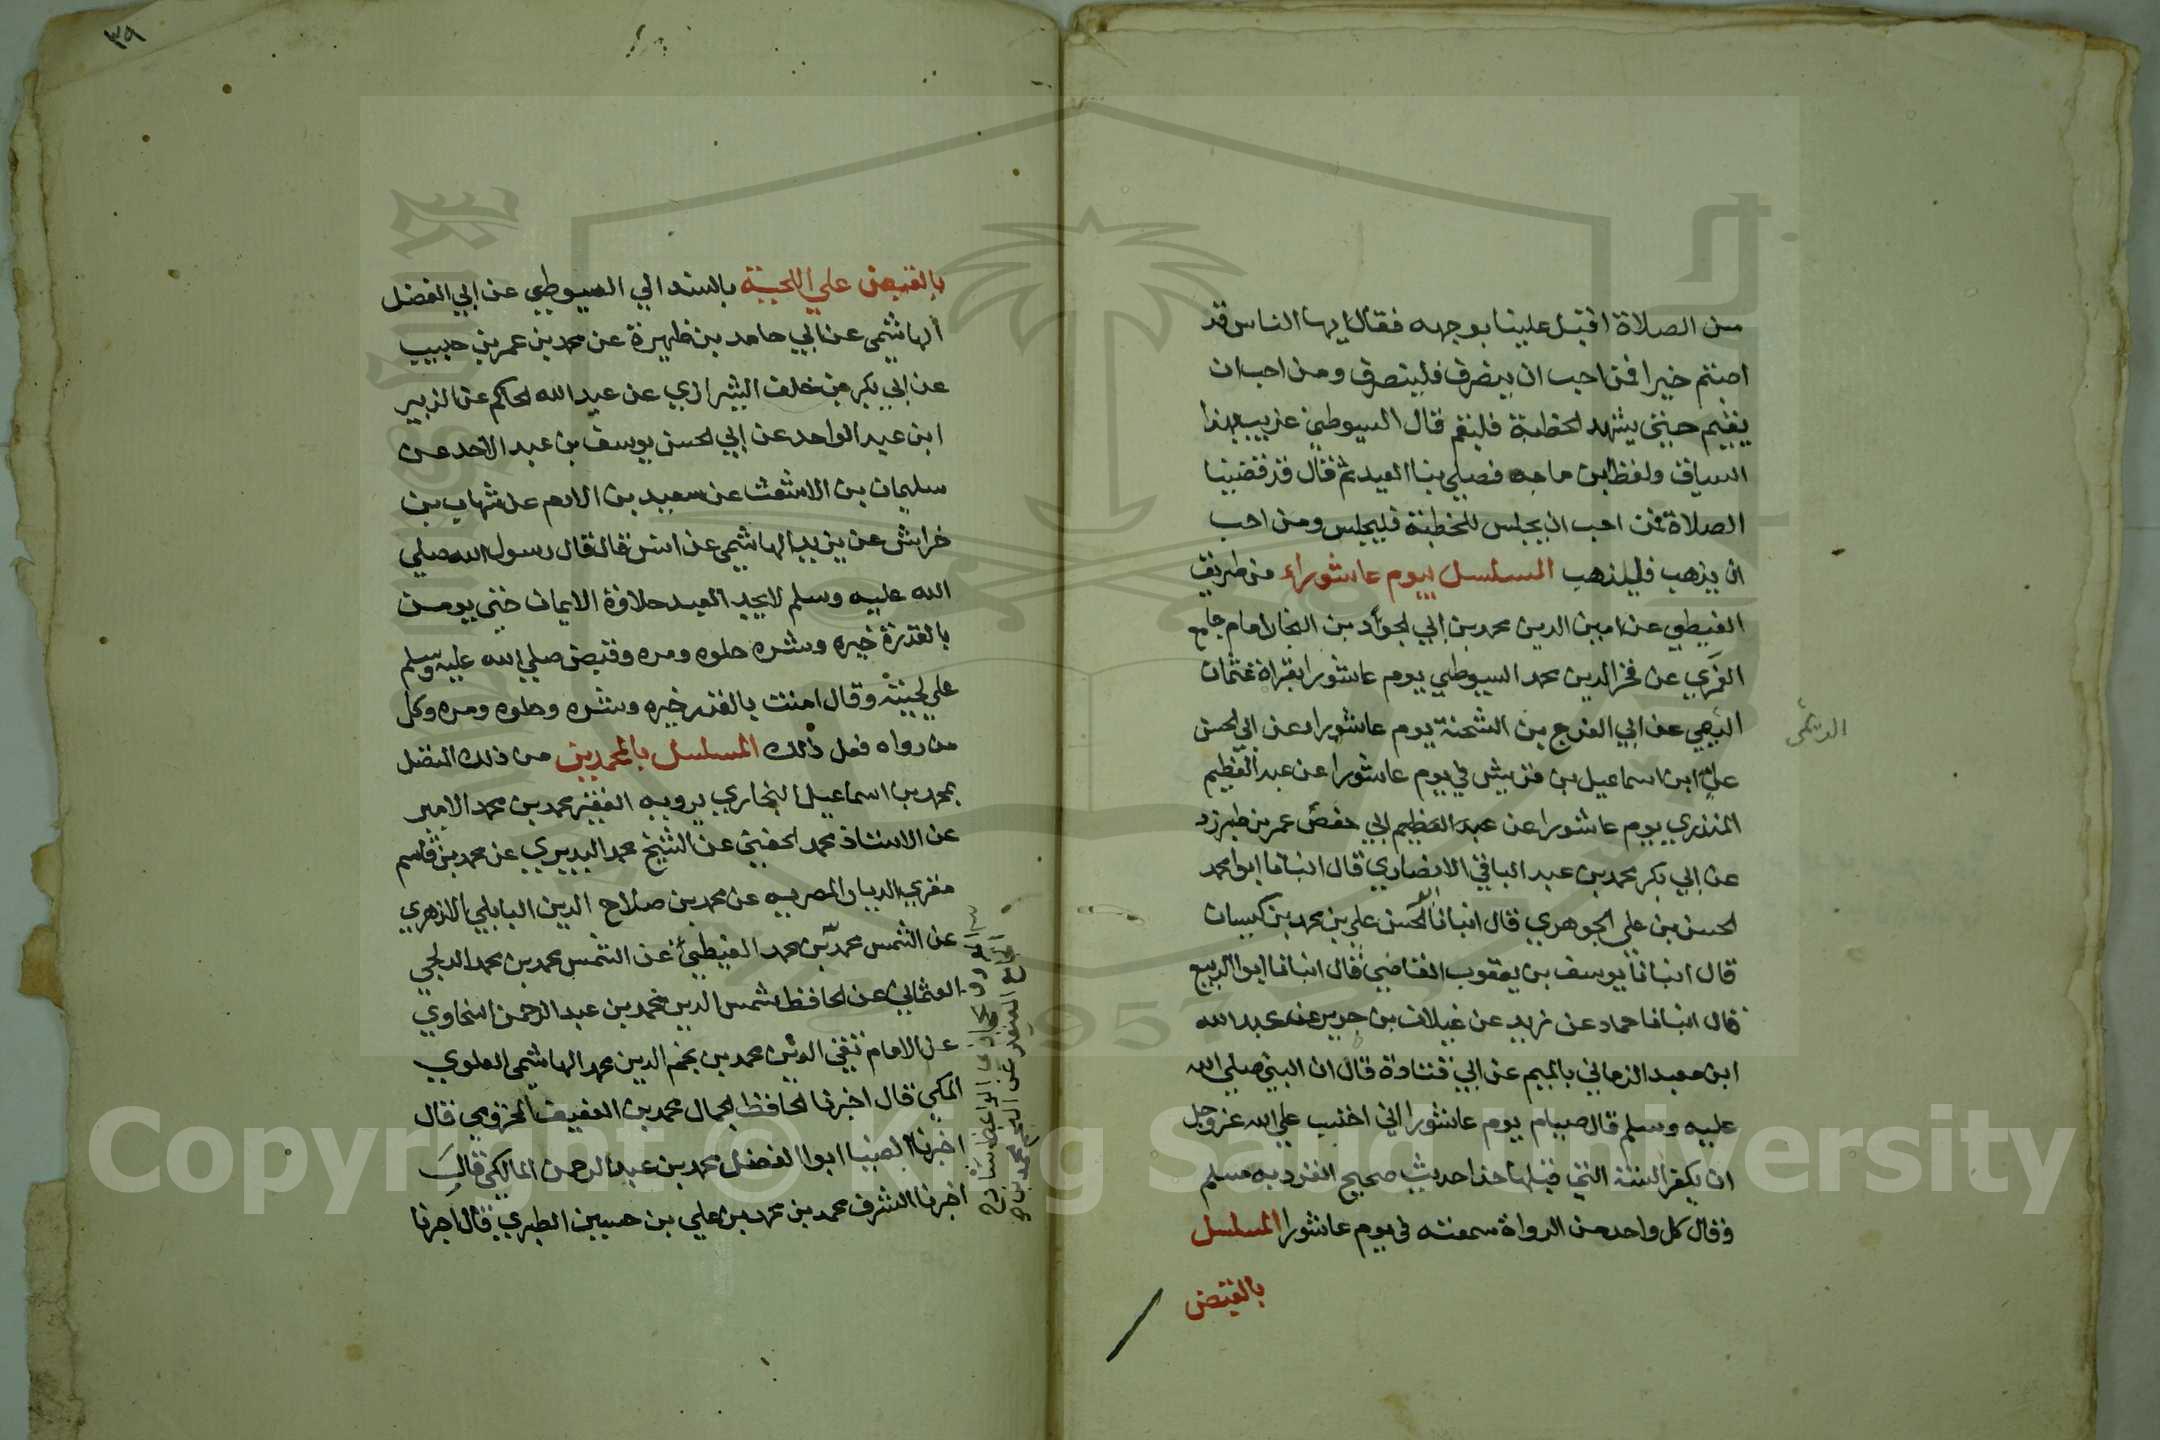 من الصلاة اقبل علينا بوجهه فقال ايها الناس قد
اصبتم خيرا فمن احب ان ينصرف فلينصرف ومن احب ان
يقيم حتى يشهد الخطبة فليقم قال السيوطي غريب بهذا
السياق ولفظ ابن ماجه فصلي بنا العيد ثم قال قد قضينا
الصلاة فمن احب ان يجلس للخطبة فليجلس ومن احب
ان يذهب فليذهب المسلسل بيوم عاشوراء من طريق
الغيطي عن امين الدين محمد بن ابي الجواد بن النجار امام جامع
الغمري عن فخر الدين محمد السيوطي بيوم عاشورا بقراة عثمان
الديمي عن ابي الفرج بن الشحنة يوم عاشوراء عن ابي الحسن
الديمي
علي ابن اسماعيل بن قريش في يوم عاشورا عن عبد العظيم
المنذري بيوم عاشورا عن ابي حفص عمر بن طبرزد
عن ابي بكر محمد بن عبد الباقي الانصاري قال انبانا ابو محمد
الحسن بن علي الجوهري قال انبانا ابو الحسن علي بن محمد بن كيسان
قال انبانا يوسف بن يعقوب القاضي قال انبانا ابو الربيع
قال انبانا حماد عن زيد عن غيلان بن جرير عن عبد الله
ابن معبد الزماني بالميم عن ابي قتادة قال ان النبي صلي الله
عليه وسلم قال صيام يوم عاشورا اني احتسب علي الله عز وجل
ان يكفر السنة التي قبلها هذا حديث صحيح انفرد به مسلم
وقال كل واحد من الرواة سمعته في يوم عاشورا المسلسل
بالقبض
٣٩
بالقبض علي اللحية بالسند الي السيوطي عن ابي الفضل
الهاشمي عن ابي حامد بن ظهيرة عن محمد بن عمر بن حبيب
عن ابي بكر بن خلف الشيرازي عن عبد الله الحاكم عن الزبير
ابن عبد الواحد عن ابي الحسن يوسف بن عبد الاحد عن
سليمان بن الاشعث عن سعيد بن الادم عن شهاب بن
خراش عن يزيد الهاشمي عن انس قال قال رسول الله صلي
الله عليه وسلم لا يجد العبد حلاوة الايمان حتى يومن
بالقدر خيره وشره حلوه ومره وقبض صلي الله عليه وسلم
علي لحيته وقال امنت بالقدر خيره وشره وحلوه ومره وكل
من رواه فعل ذلك المسلسل بالمحمدين من ذلك المتصل
بمحمد بن اسماعيل البخاري يرويه الفقير محمد بن محمد الامير
عن الاستاذ محمد الحفني عن الشيخ محمد البديري عن محمد بن قاسم
مقري الديار المصريه عن محمد بن صلاح الدين البابلي الازهري
عن الشمس محمد بن محمد الغيطي عن الشمس محمد بن محمد الدلجي
العثماني عن الحافظ شمس الدين محمد بن عبد الرحمن السخاوي
عن الامام تقي الدين محمد بن نجم الدين محمد الهاشمي العلوي
المكي قال اخبرنا الحافظ الجمال محمد بن العفيف المخزومي قال
اخبرنا الضيا ابو الفضل محمد بن عبد الرحمن المالكي قال
اخبرنا الشرف محمد بن محمد بن علي بن حسين الطبري قال اخبرنا
Copyright © King Saud University
1957